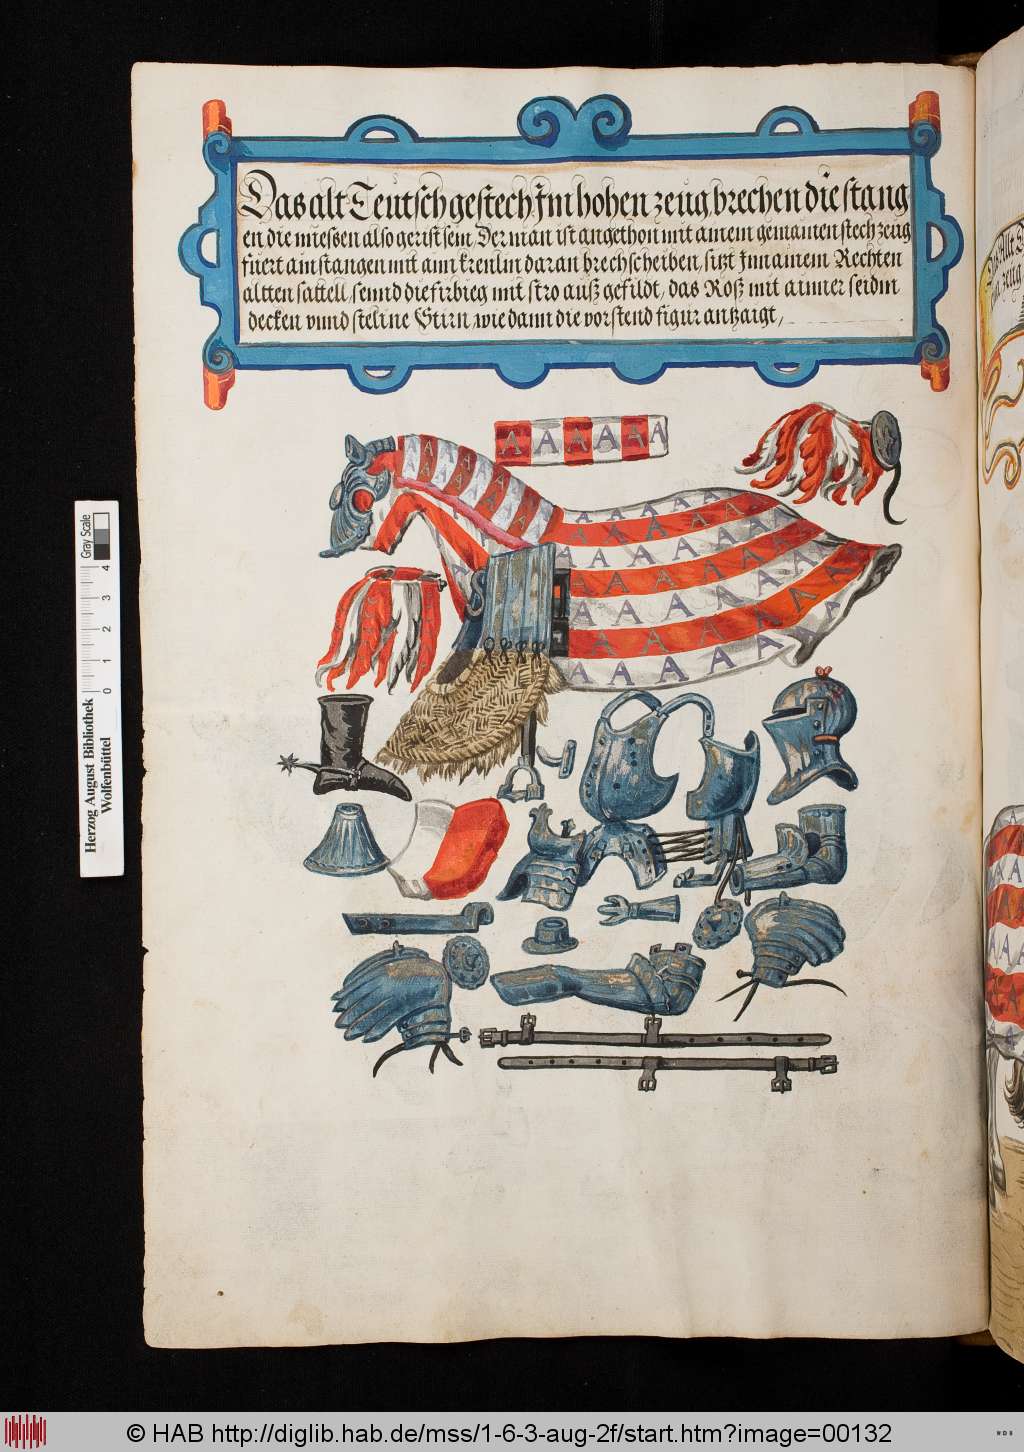 Das alt Teutsch gestech Im hohen zeug, brechen die stang
en die muessen also gerist sein, Der man ist angethon mit ainem gemainen stech zeug
fuert ain stangen mit ain krenlin daran brechscheiben, sitzt Inn ainem Rechten
altten sattell, sennd die firbieg mit stro auß gefildt, das Roß mit ainner seidin
decken vund steline Stirn, wie dann die vorstend figur antzaigt,
A A A A A A
Herzog August Bibliothek
Wolfenbüttel
0 1 2 3 4
Gray Scale
© HAB http://diglib.hab.de/mss/1-6-3-aug-2f/start.htm?image=00132